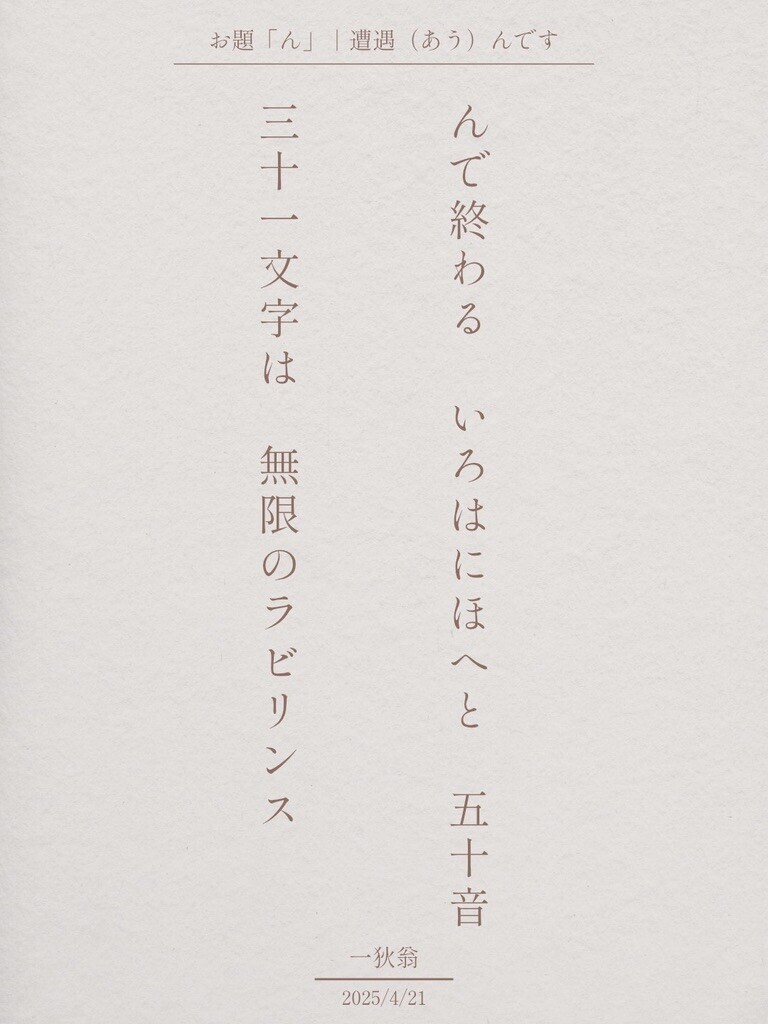 お題「ん」｜遭遇（あう）んです
んで終わる　いろはにほへと　五十音
三十一文字は　無限のラビリンス
一狄翁
2025/4/21